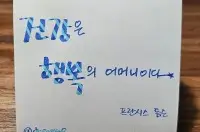 건강은
행복의 어머니이다
프란시스 톰슨